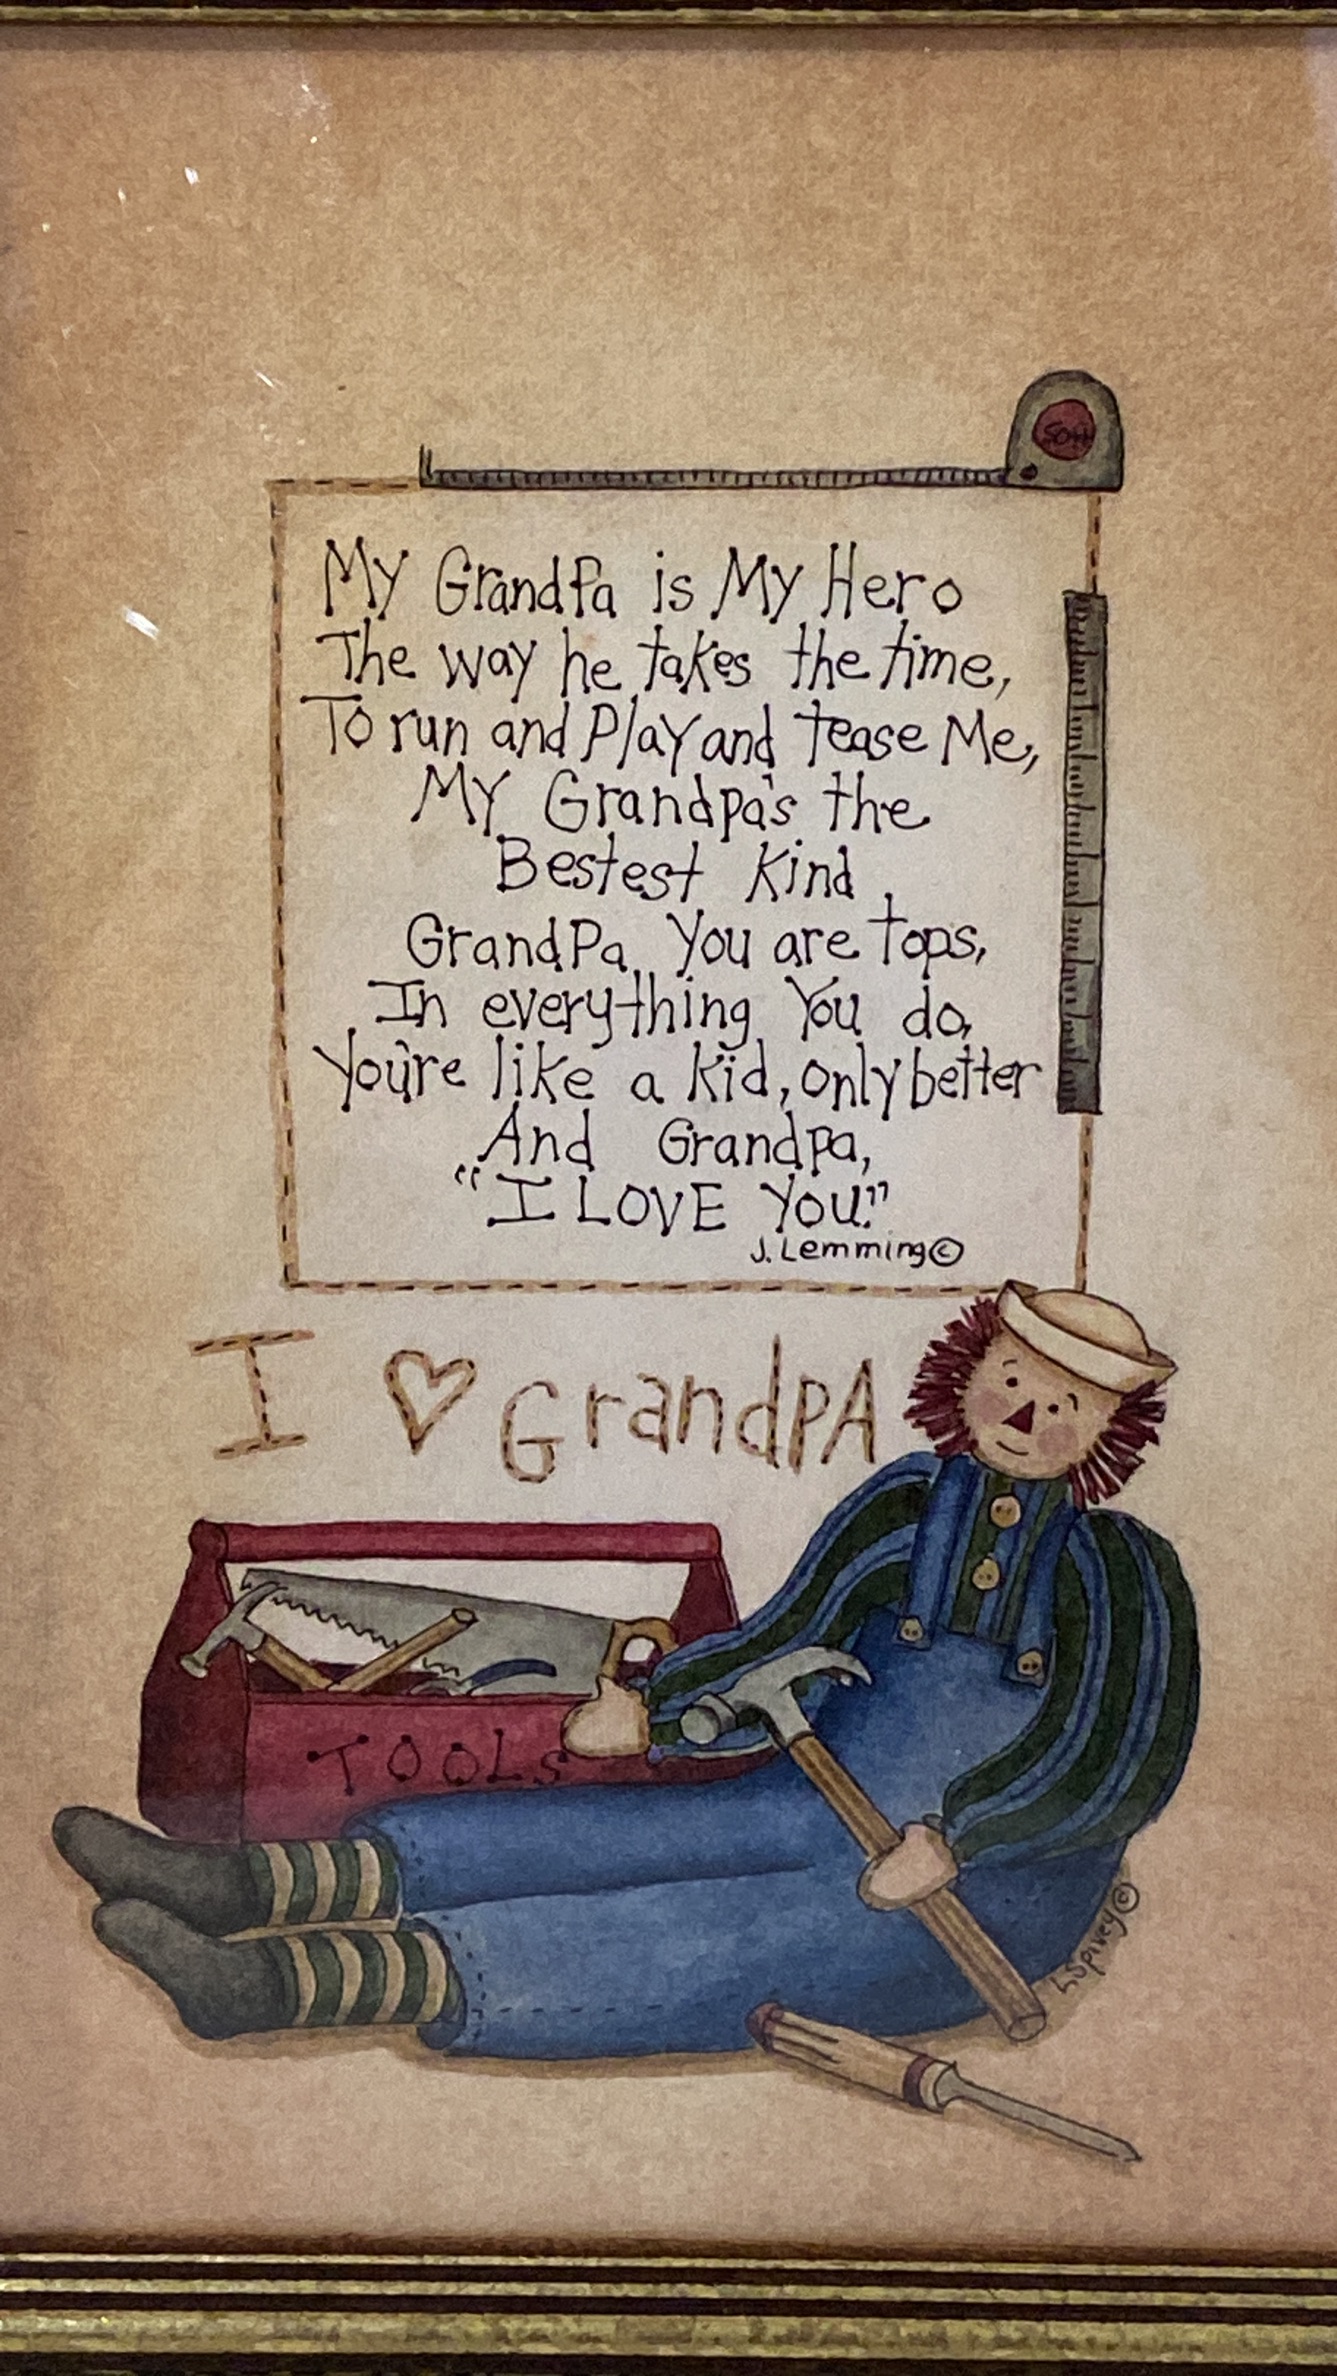 50ft
My GrandPa is My Hero
The way he takes the time,
To run and Play and tease Me,
My Grandpa's the
Bestest Kind
GrandPa, You are tops,
In everything You do,
You're like a Kid, only better
And Grandpa,
"I LOVE You."
J. Lemming©
I ♡ GrandPA
TOOLS
L Spivey©